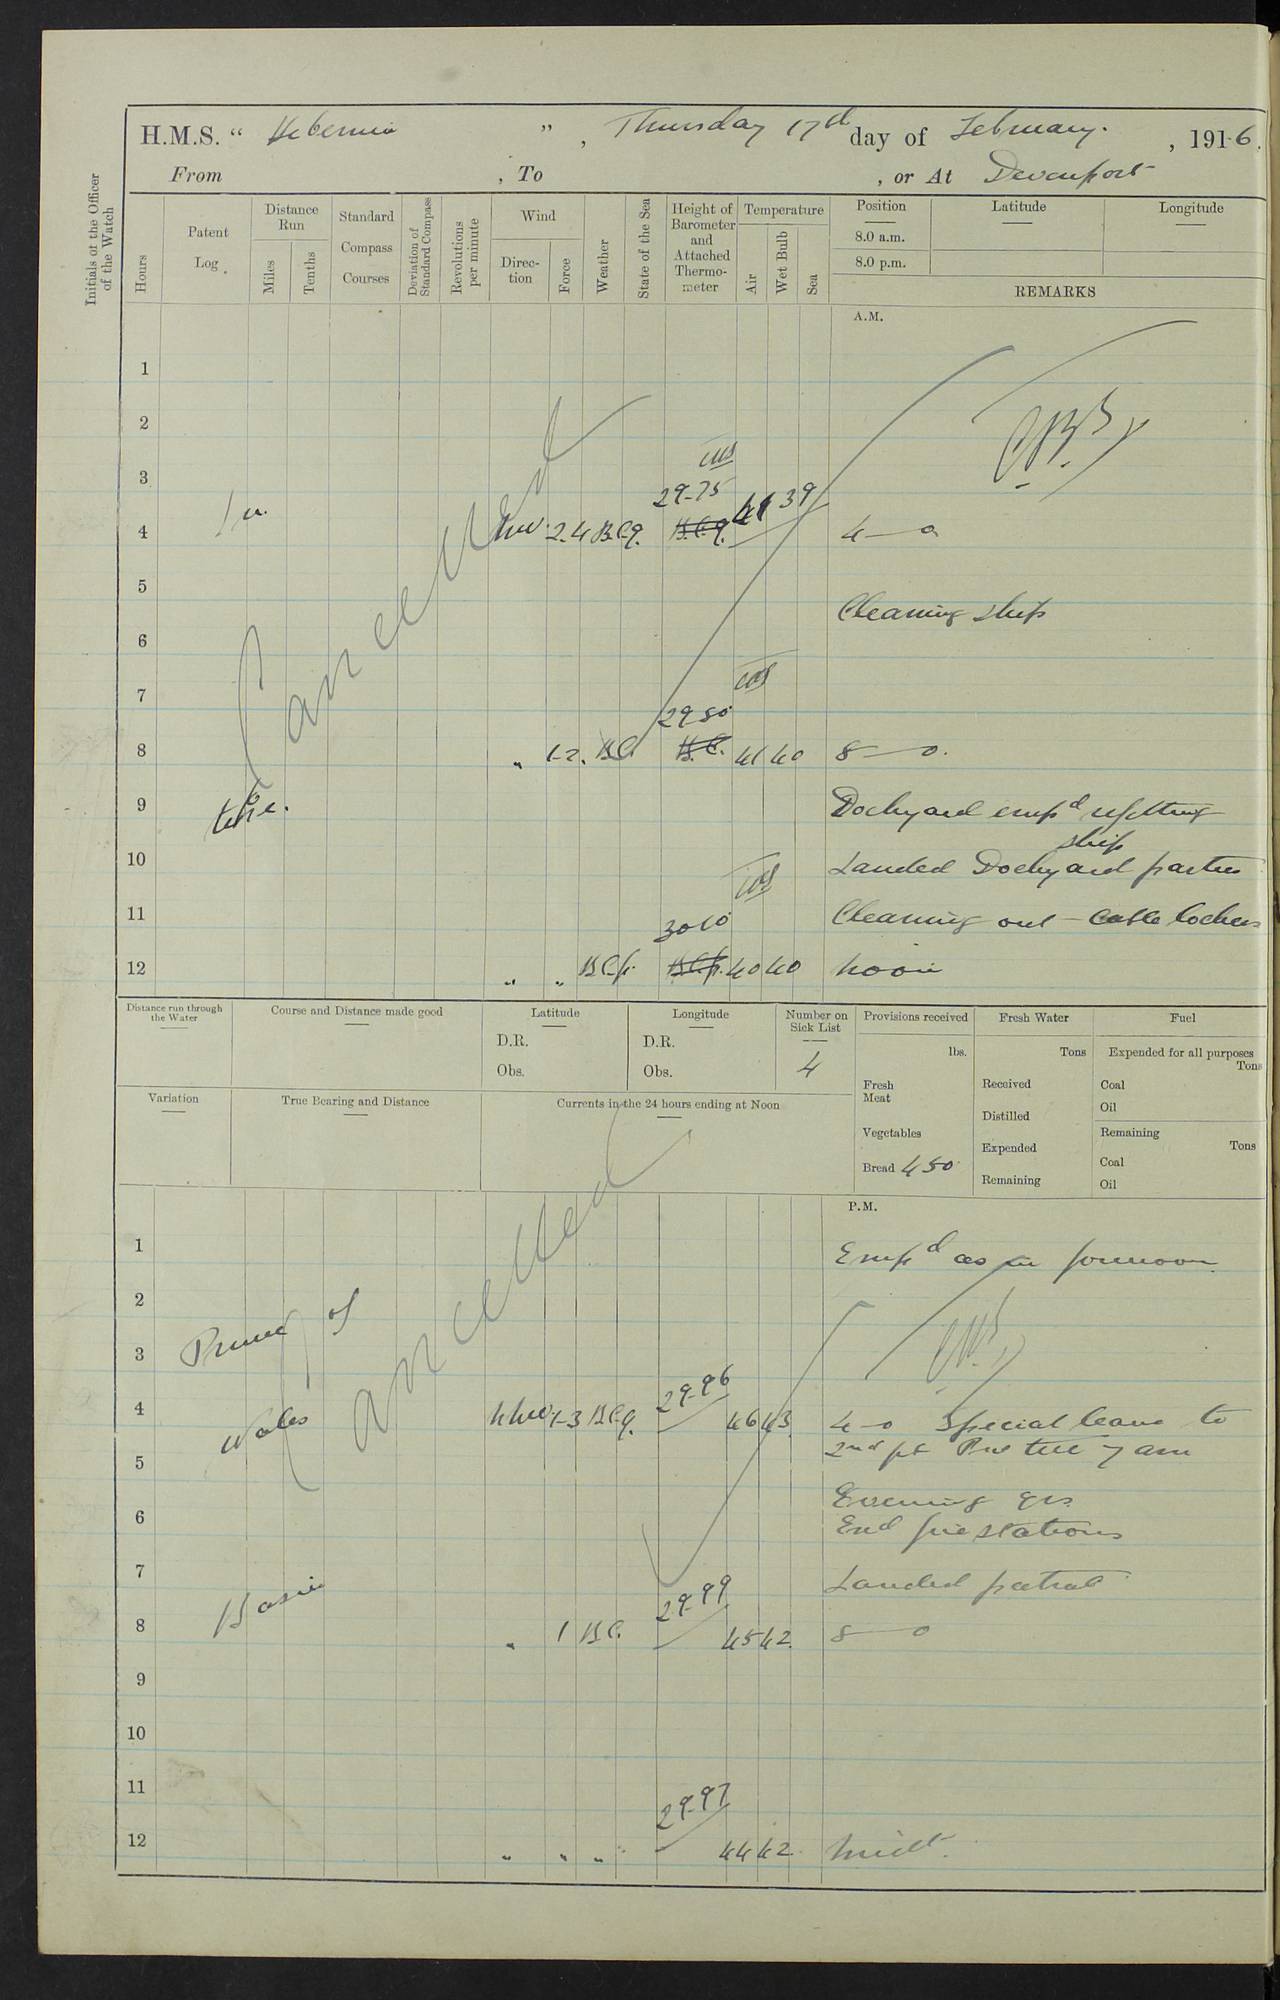 H.M.S. “ Hibernia ” , Thursday 17th day of February. , 1916.
From , To , or At Devonport
Initials of the Officer of the Watch
Hours
Patent Log
Distance Run
Miles Tenths
Standard Compass Courses
Deviation of Standard Compass
Revolutions per minute
Wind
Direction Force
Weather
State of the Sea
Height of Barometer and Attached Thermometer
Temperature
Air Wet Bulb Sea
Position Latitude Longitude
8.0 a.m.
8.0 p.m.
REMARKS
A.M.
1
2
3
29-75
4 In NW 2.4 B.C.q. B.C.q. 41 39 4—0
5
Cleaning ship
6
Cancelled
7
29-80
8 „ 1-2. B.C. B.C. 41 40 8—0.
9 the. Dockyard empd refitting
ship
10 Landed Dockyard parties
11 Cleaning out Cable lockers
3010
12 „ „ B.C.p. B.C.p. 40 40 Noon
Distance run through the Water
Course and Distance made good
Latitude
D.R.
Obs.
Longitude
D.R.
Obs.
Number on Sick List
4
Provisions received
lbs.
Fresh Meat
Vegetables
Bread 450
Fresh Water
Tons
Received
Distilled
Expended
Remaining
Fuel
Expended for all purposes
Tons
Coal
Oil
Remaining
Tons
Coal
Oil
Variation
True Bearing and Distance
Currents in the 24 hours ending at Noon
P.M.
1 Empd as in forenoon
2
Cancelled
3 Prince of
29-96
4 Wales NNW 1-3 B.C.q. 46 43 4—0 Special leave to
5 2nd pt Port till 7 am
Evening qrs.
6 End fire stations
7 Landed patrol
29-99
8 Basin „ 1 B.C. 45 42 8—0
9
10
11
29-97
12 „ „ „ 44 42 Midt.